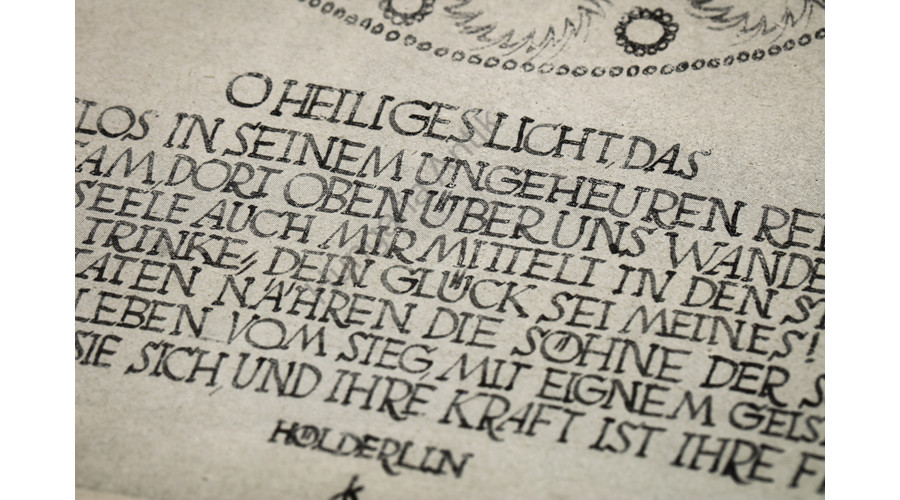 O HEILIGES LICHT, DAS
LOS IN SEINEM UNGEHEUREN
AM, DORT OBEN ÜBER UNS WANDE
SEELE AUCH MIR MITTEILT IN DEN
TRINKE, DEIN GLÜCK SEI MEINES!
TATEN NÄHREN DIE SÖHNE DER
LEBEN VOM SIEG, MIT EIGNEM GEIS
SIE SICH, UND IHRE KRAFT IST IHRE
HÖLDERLIN